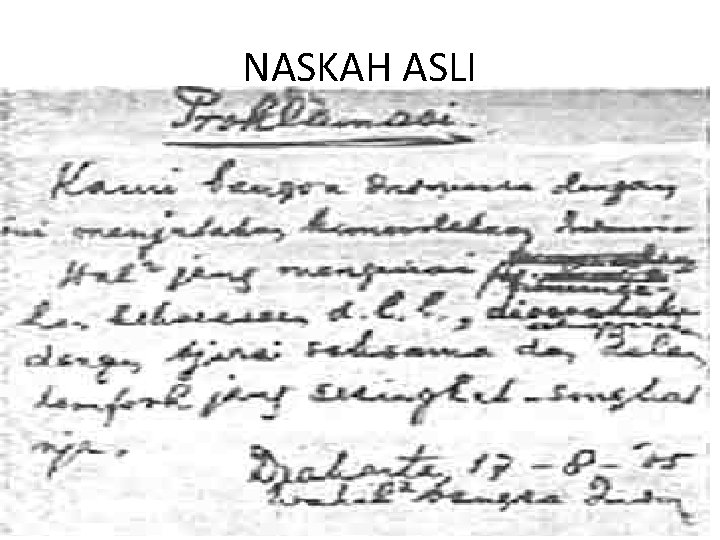 NASKAH ASLI
Proklamasi.
Kami bangsa Indonesia dengan
ini menjatakan kemerdekaan Indonesia.
Hal² jang mengenai
d.l.l., diselenggarakan
dengan tjara saksama dan dalam
tempoh jang sesingkat-singkat
nja.
Djakarta, 17-8-'05
Wakil² bangsa Indon